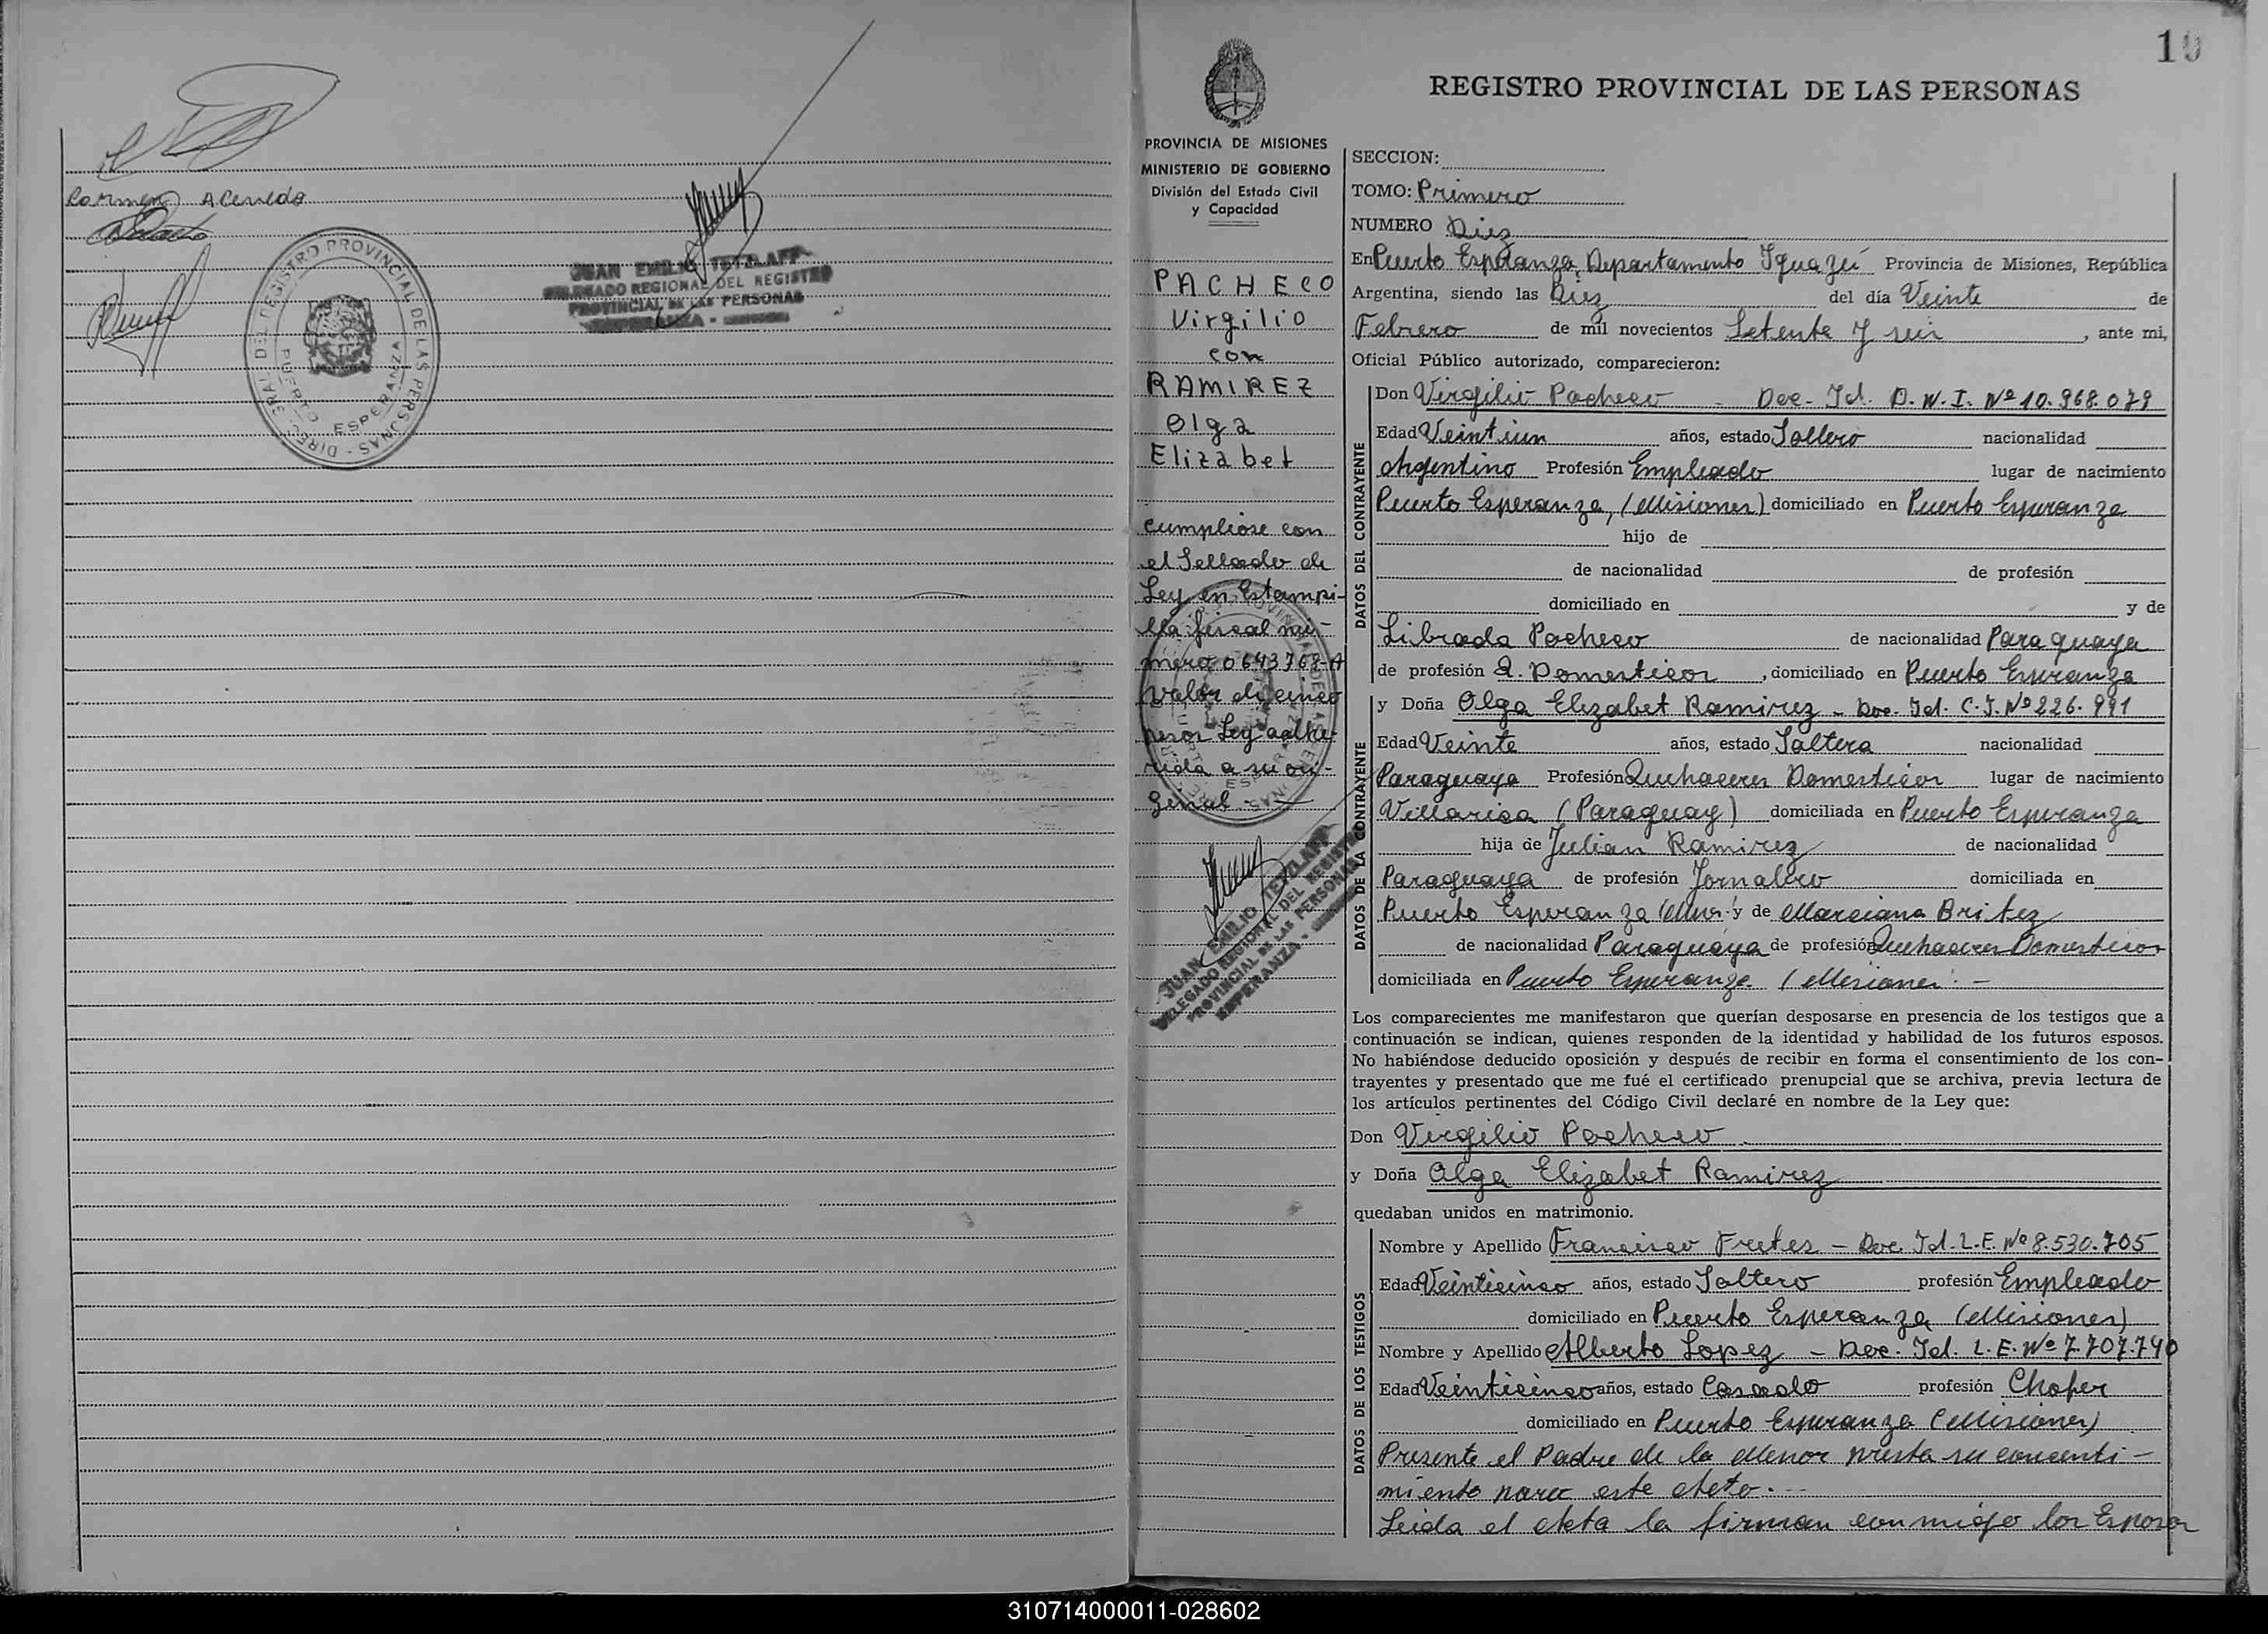 Carmen Acevedo
DIREC. GRAL. DEL REGISTRO PROVINCIAL DE LAS PERSONAS
PUERTO ESPERANZA
JUAN EMILIO TETZLAFF
DELEGADO REGIONAL DEL REGISTRO
PROVINCIAL DE LAS PERSONAS
ESPERANZA - MISIONES
10
REGISTRO PROVINCIAL DE LAS PERSONAS
PROVINCIA DE MISIONES
MINISTERIO DE GOBIERNO
División del Estado Civil
y Capacidad
PACHECO
Virgilio
con
RAMIREZ
Olga
Elizabet
cumpliose con
el Sellado de
Ley en Estampi-
lla fiscal nú-
mero 0643768-A
valor de cinco
pesos Ley adhe-
rida a su ori-
ginal -
JUAN EMILIO TETZLAFF
DELEGADO REGIONAL DEL REGISTRO
PROVINCIAL DE LAS PERSONAS
ESPERANZA - MISIONES
SECCION:
TOMO: Primero
NUMERO Diez
En Puerto Esperanza, Departamento Iguazú Provincia de Misiones, República
Argentina, siendo las Diez del día Veinte de
Febrero de mil novecientos Setenta y seis, ante mi,
Oficial Público autorizado, comparecieron:
DATOS DEL CONTRAYENTE
Don Virgilio Pacheco - Doc. Id. D.N.I. Nº 10.968.079
Edad Veintiun años, estado Soltero nacionalidad
Argentino Profesión Empleado lugar de nacimiento
Puerto Esperanza, (Misiones) domiciliado en Puerto Esperanza
hijo de
de nacionalidad de profesión
domiciliado en y de
Librada Pacheco de nacionalidad Paraguaya
de profesión Q. Domesticos, domiciliado en Puerto Esperanza
DATOS DE LA CONTRAYENTE
y Doña Olga Elizabet Ramirez - Doc. Id. C.I. Nº 226.991
Edad Veinte años, estado Soltera nacionalidad
Paraguaya Profesión Quehaceres Domesticos lugar de nacimiento
Villarica (Paraguay) domiciliada en Puerto Esperanza
hija de Julian Ramirez de nacionalidad
Paraguaya de profesión Jornalero domiciliada en
Puerto Esperanza (Mnes. y de Marciana Britez
de nacionalidad Paraguaya de profesión Quehaceres Domesticos
domiciliada en Puerto Esperanza (Misiones). -
Los comparecientes me manifestaron que querían desposarse en presencia de los testigos que a
continuación se indican, quienes responden de la identidad y habilidad de los futuros esposos.
No habiéndose deducido oposición y después de recibir en forma el consentimiento de los con-
trayentes y presentado que me fué el certificado prenupcial que se archiva, previa lectura de
los artículos pertinentes del Código Civil declaré en nombre de la Ley que:
Don Virgilio Pacheco
y Doña Olga Elizabet Ramirez
quedaban unidos en matrimonio.
DATOS DE LOS TESTIGOS
Nombre y Apellido Francisco Fretes - Doc. Id. L.E. Nº 8.530.705
Edad Veinticinco años, estado Soltero profesión Empleado
domiciliado en Puerto Esperanza (Misiones)
Nombre y Apellido Alberto Lopez - Doc. Id. L.E. Nº 7.707.740
Edad Veinticinco años, estado Casado profesión Chofer
domiciliado en Puerto Esperanza (Misiones)
Presente el Padre de la Menor presta su consenti-
miento para este Acto. --
Leida el Acta la firman conmigo los Esposos
310714000011-028602